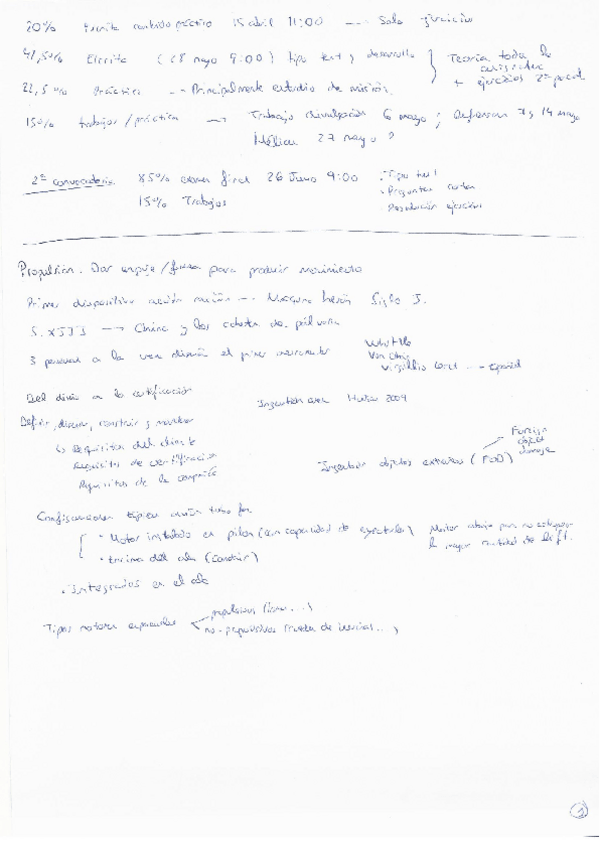 20% Escrito contenido práctico 15 abril 11:00 --- Solo ejercicios
41,5% Escrito (28 mayo 9:00) tipo test y desarrollo
Teoría toda la asignatura
+ ejercicios 2º parcial
22,5% Práctica -- Principalmente estudio de misión.
15% trabajos/práctica → Trabajo divulgación 6 mayo; defensa 7 y 14 mayo
27 mayo?
2ª convocatoria 85% examen final 26 Junio 9:00
15% Trabajos
· Tipo test
· Preguntas cortas
· Resolución ejercicios
Propulsion. Dar empuje/fuerza para producir movimiento
Primer dispositivo acción reacción -- Maquina herón Siglo I.
S. XIII → China y los cohetes de pólvora
3 personas a la vez diseñan el primer
Whittle
Von Ohain
Virgilio Leret -- español
Del diseño a la certificación
2009
Definir, diseñar, construir y
↳ Requisitos del cliente
Requisitos de certificación
Requisitos de la compañía
Ingestion objetos extraños (FOD)
Foreign object damage
Configuraciones típicas avión turbo fan
· Motor instalado en pilon (con capacidad de
Motor abajo para no estropear la mayor cantidad de lift.
· Encima del ala
· Integrados en el ala
Tipos motores
propulsivos
no-propulsivos
1